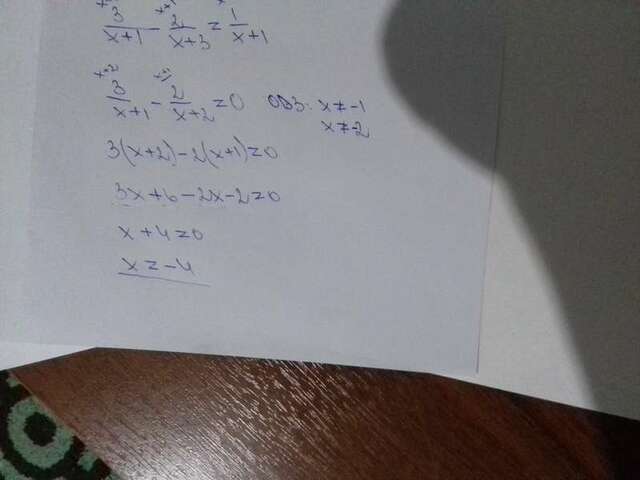 3/x+1 - 2/x+3 = 1/x+1
x+2 x+1
3/x+1 - 2/x+2 = 0 ОДЗ: x ≠ -1
x ≠ -2
3(x+2)-2(x+1)=0
3x+6-2x-2=0
x+4=0
x=-4